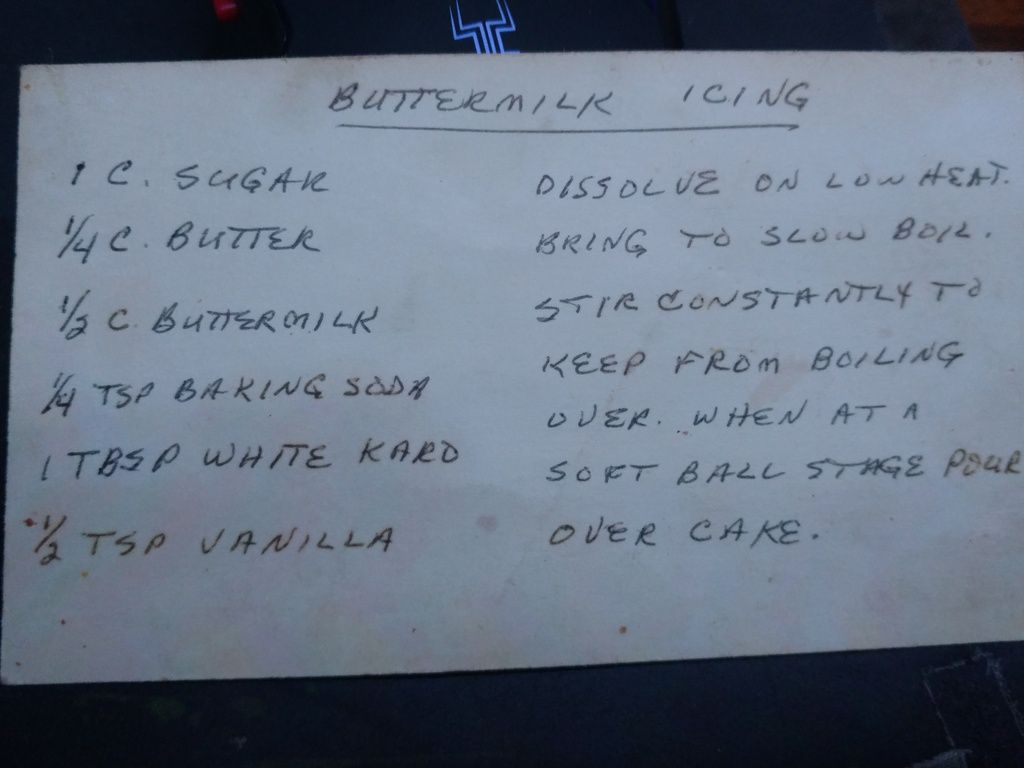 BUTTERMILK ICING
1 C. SUGAR
1/4 C. BUTTER
1/2 C BUTTERMILK
1/4 TSP BAKING SODA
1 TBSP WHITE KARO
1/2 TSP VANILLA
DISSOLVE ON LOW HEAT.
BRING TO SLOW BOIL.
STIR CONSTANTLY TO
KEEP FROM BOILING
OVER. WHEN AT A
SOFT BALL STAGE POUR
OVER CAKE.